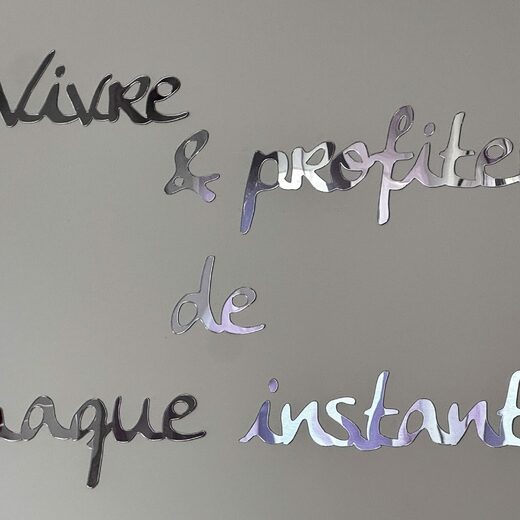 Vivre
& profiter
de
chaque instant